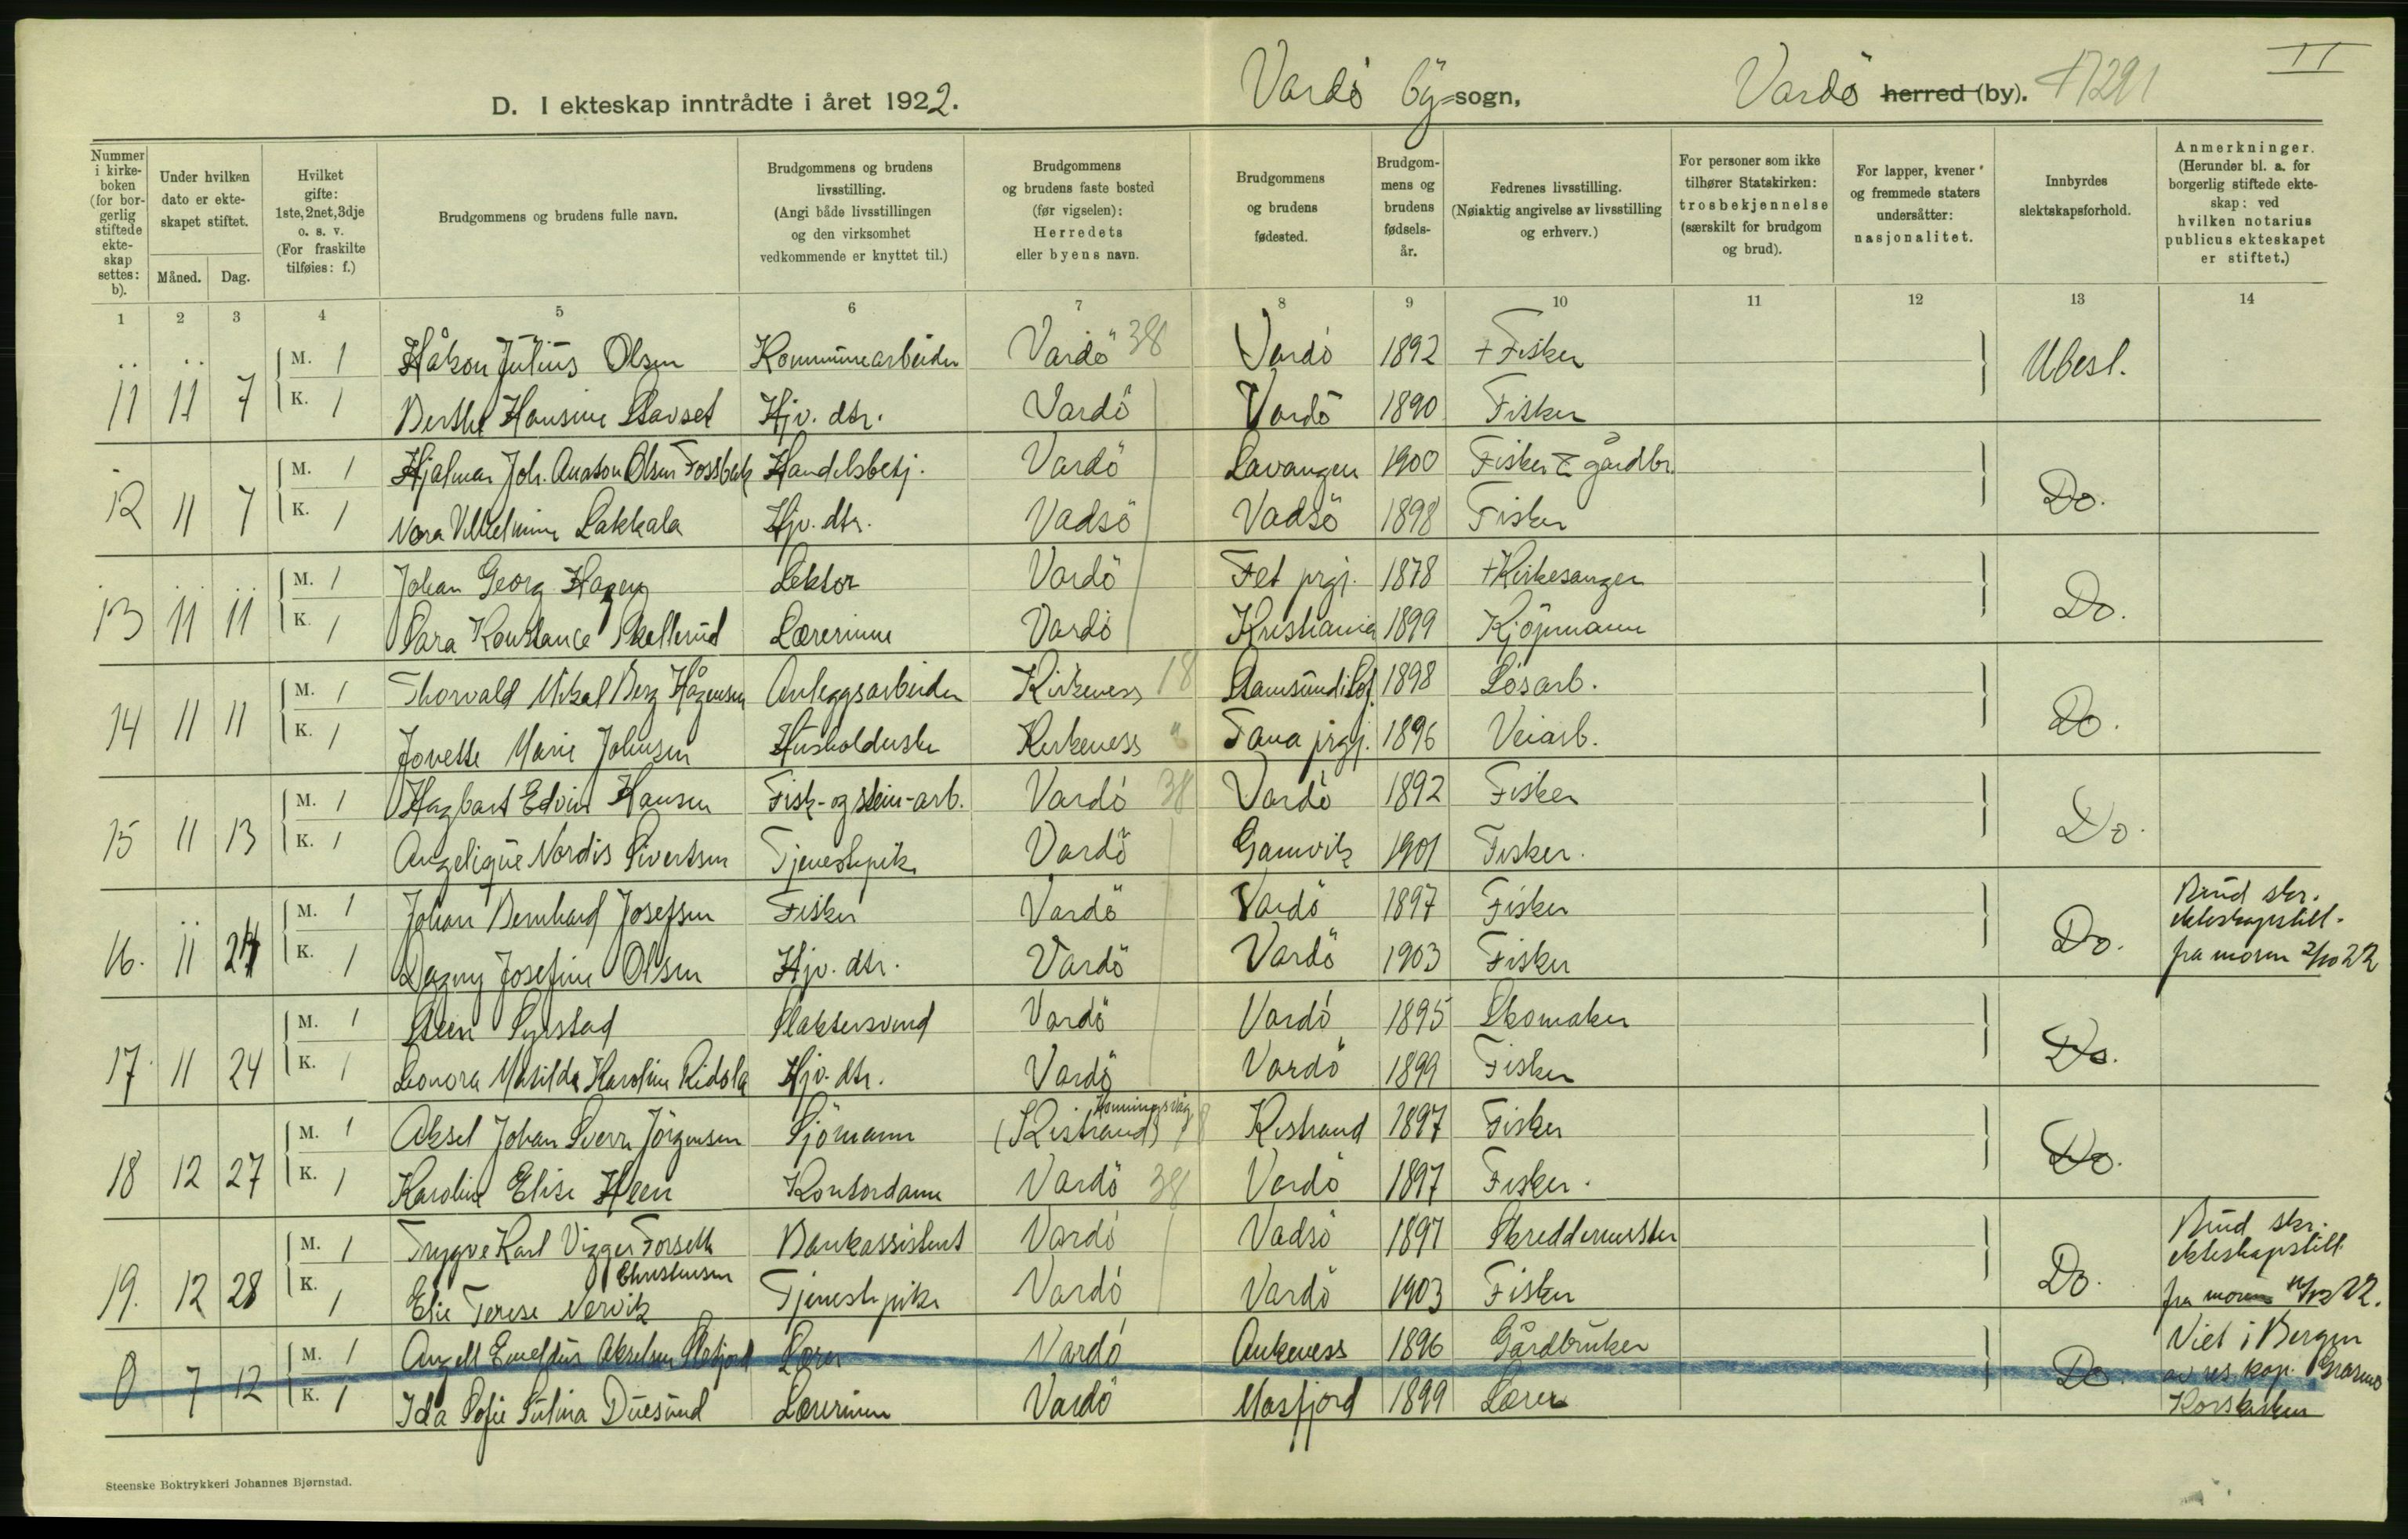 II
D. I ekteskap inntrådte i året 1922. Vardö by sogn, Vardö herred (by).
Nummer i kirkeboken (for borgerlig stiftede ekteskap settes: b).
Under hvilken dato er ekteskapet stiftet.
Måned. Dag.
Hvilket gifte: 1ste, 2net, 3dje o. s. v. (For fraskilte tilføies: f.)
Brudgommens og brudens fulle navn.
Brudgommens og brudens livsstilling. (Angi både livsstillingen og den virksomhet vedkommende er knyttet til.)
Brudgommens og brudens faste bosted (før vigselen): Herredets eller byens navn.
Brudgommens og brudens fødested.
Brudgommens og brudens fødselsår.
Fedrenes livsstilling. (Nøiaktig angivelse av livsstilling og erhverv.)
For personer som ikke tilhører Statskirken: trosbekjennelse (særskilt for brudgom og brud).
For lapper, kvener og fremmede staters undersåtter: nasjonalitet.
Innbyrdes slektskapsforhold.
Anmerkninger. (Herunder bl. a. for borgerlig stiftede ekteskap: ved hvilken notarius publicus ekteskapet er stiftet.)
1 2 3 4 5 6 7 8 9 10 11 12 13 14
M. 1 Håkon Julius Olsen Kommunearbeider Vardö 38 Vardö 1892 + Fisker Ubesl.
11 11 7 K. 1 Berthe Hansine Stavset Hjv. dtr. Vardö Vardö 1890 Fisker
M. 1 Hjalmar Joh. Olsen Fossbakk Handelsbetj. Vardö Lavangen 1900 Fisker & gårdbr. Do.
12 11 7 K. 1 Nora Vilhelmine Lakkala Hjv. dtr. Vadsö Vadsö 1898 Fisker
M. 1 Johan Georg Hagen Lektor Vardö Fet prgj. 1878 + Kirkesanger Do.
13 11 11 K. 1 Sara Konstance Skellerud Lærerinne Vardö Kristiania 1899 Kjöpmann
M. 1 Thorvald Mikal Berg Hågensen Anleggsarbeider Kirkenes 18 Stamsund i Lof. 1898 Lösarb. Do.
14 11 11 K. 1 Jonette Marie Johnsen Husholderske Kirkenes Tana prgj. 1896 Veiarb.
M. 1 Hagbart Edvin Hansen Fisk- og stein-arb. Vardö 38 Vardö 1892 Fisker Do.
15 11 13 K. 1 Angelique Nordis Sivertsen Tjenestepike Vardö Gamvik 1901 Fisker.
M. 1 Johan Bernhard Josefsen Fisker Vardö Vardö 1897 Fisker Do. Brud skr. ekteskapstill. fra moren 2/10 22
16. 11 24 K. 1 Dagny Josefine Olsen Hjv. dtr. Vardö Vardö 1903 Fisker
M. 1 Steen Syrstad Slaktersvend Vardö Vardö 1895 Skomaker Do.
17 11 24 K. 1 Leonora Matilde Karoline Ridola Hjv. dtr. Vardö Vardö 1899 Fisker
M. 1 Aksel Johan Sverre Jörgensen Sjömann Honningsvåg (Kistrand) 18 Kistrand 1897 Fisker Do.
18 12 27 K. 1 Karoline Elise Heen Kontordame Vardö 38 Vardö 1897 Fisker.
M. 1 Trygve Karl Vigger Forseth Bankassistent Vardö Vadsö 1897 Skreddermester Do. Brud skr. ekteskapstill. fra moren 22.
19. 12 28 K. 1 Elie Terese Christensen Nervik Tjenestepike Vardö Vardö 1903 Fisker
M. 1 Angell Emeldus Akselsen Lærer Vardö Ankenes 1896 Gårdbruker Do. Viet i Bergen av res. kap. Korskirken
0 7 12 K. 1 Ida Sofie Sulina Duesund Lærerinne Vardö Masfjord 1899 Lærer
Steenske Boktrykkeri Johannes Bjørnstad.